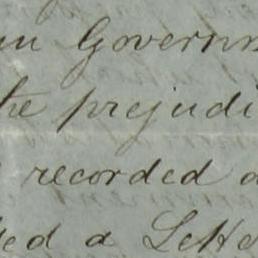 Govern
the prejudi
recorded a
ded a Lette